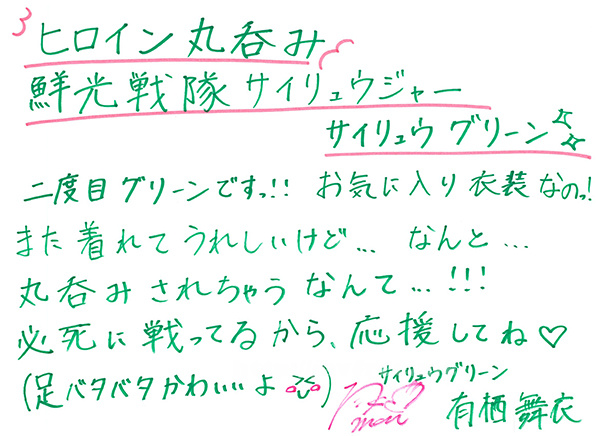 ヒロイン丸呑み
鮮光戦隊サイリュウジャー
サイリュウグリーン
二度目グリーンですっ!! お気に入り衣装なのっ!
また着れてうれしいけど… なんと…
丸呑みされちゃうなんて…!!!
必死に戦ってるから、応援してね♡
(足バタバタかわいいよ)
サイリュウグリーン
有栖舞衣